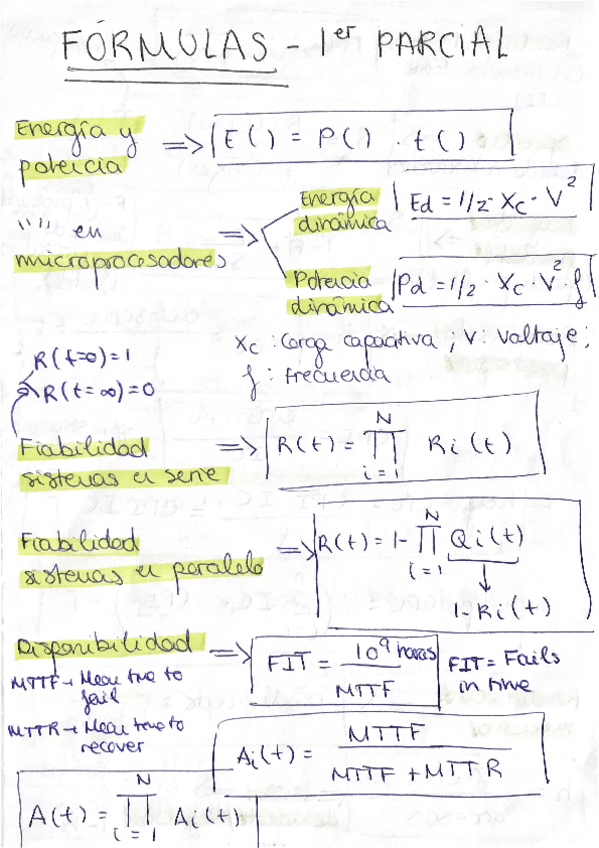 FÓRMULAS - 1er PARCIAL
Energía y potencia => E() = P() · t()
"" "" en microprocesadores =>
Energía dinámica Ed = 1/2 · Xc · V²
Potencia dinámica Pd = 1/2 · Xc · V² · f
Xc: Carga capacitiva, V: Voltaje;
f: frecuencia
R(t=0)=1
R(t=∞)=0
Fiabilidad sistemas en serie => R(t) = ∏ i=1 N Ri(t)
Fiabilidad sistemas en paralelo => R(t) = 1- ∏ i=1 N Qi(t)
↓
1-Ri(t)
Disponibilidad => FIT = 10⁹ horas / MTTF
FIT = Fails in time
MTTF → Mean time to fail
MTTR → Mean time to recover
Ai(t) = MTTF / MTTF + MTTR
A(t) = ∏ i=1 N Ai(t)